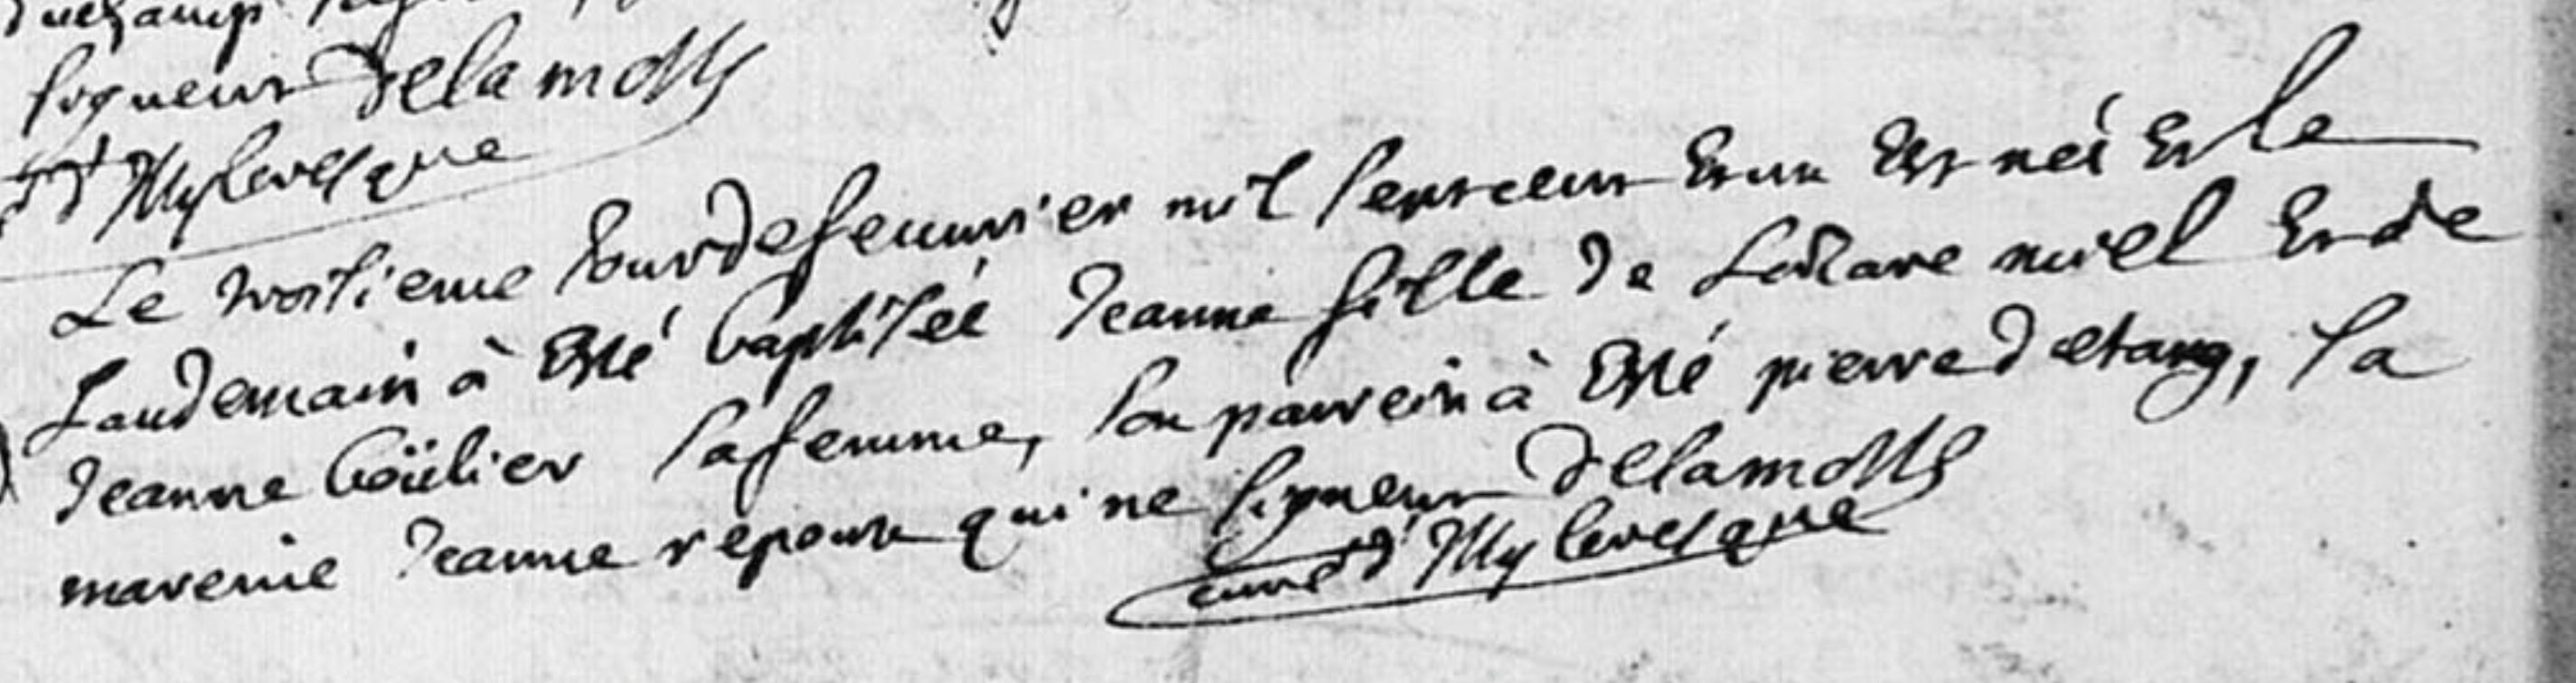 signeur Delamotte
d'Mylevesque
Le troisieme iour de feuurier mil septcent et un est neé et le
landemain à esté baptiseé Jeanne fille de Lazare miel et de
Jeanne boüelier sa femme, son parrein à esté pierre detang, sa
mareine Jeanne repoux qui ne signeur Delamotte
curé d'Mylevesque